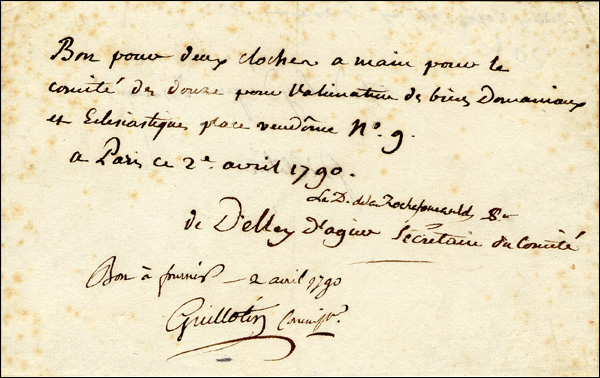 Bon pour deux cloches a main pour le
comité des douze pour l'alienation des biens Domaniaux
et Eclesiastiques place vendôme N.º 9.
a Paris ce 2e. avril 1790.
Le D. de la Rochefoucauld,
de D'elley D'agier Sécrétaire du Comité
Bon à fournir — 2 avril 1790
Guillotin